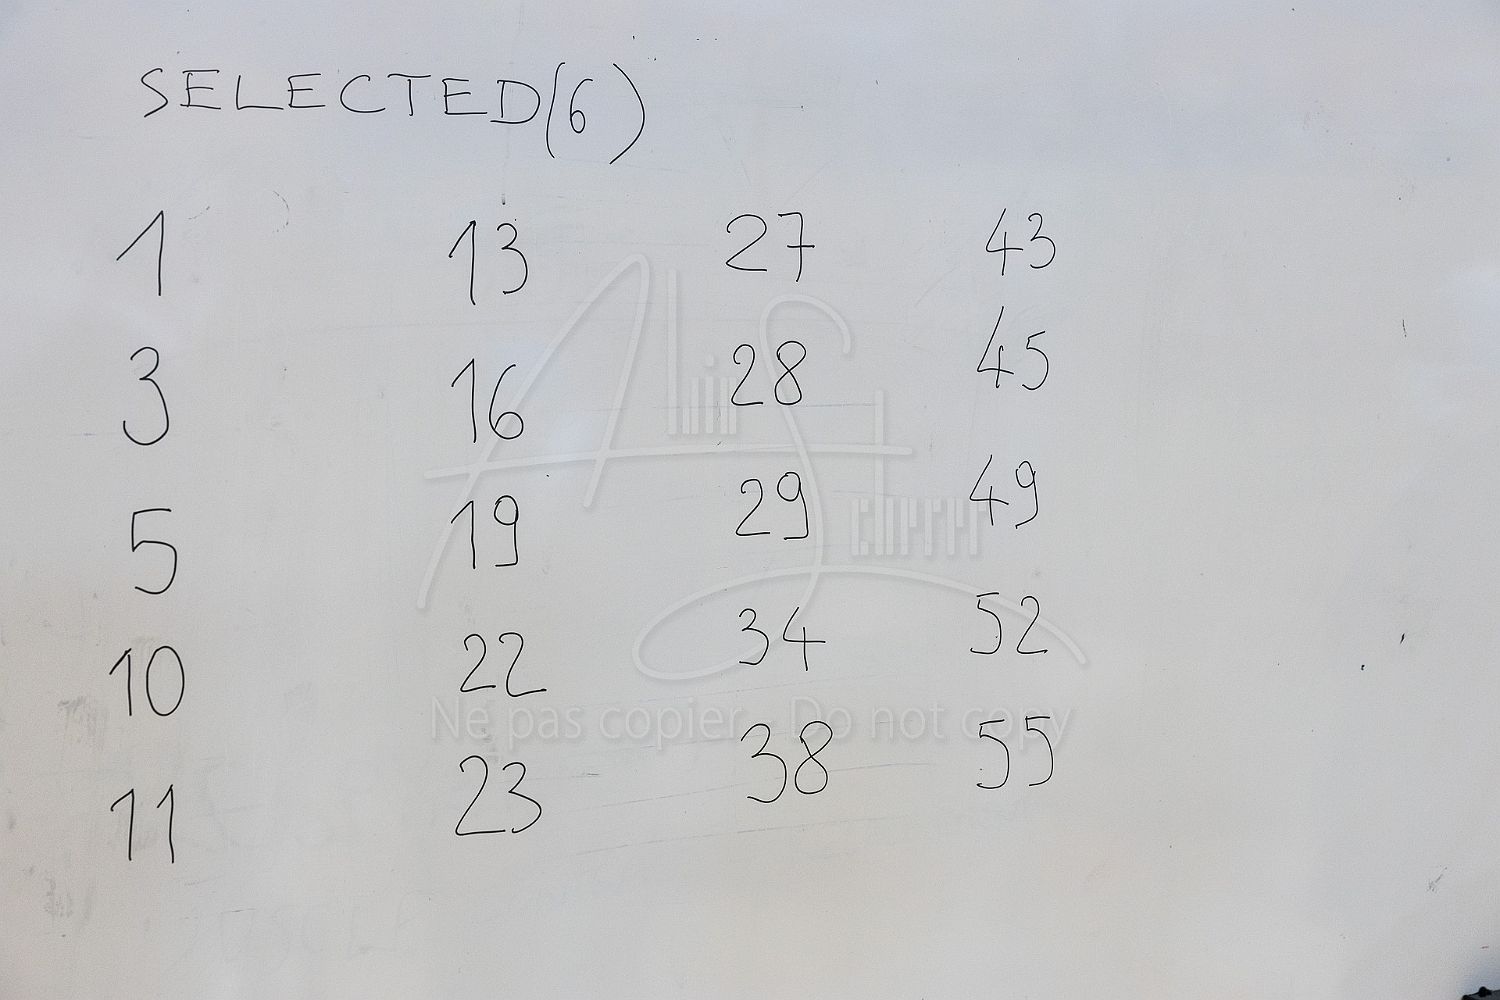 SELECTED(6)
1 13 27 43
3 16 28 45
5 19 29 49
10 22 34 52
11 23 38 55
Alain Scherrer
Ne pas copier - Do not copy